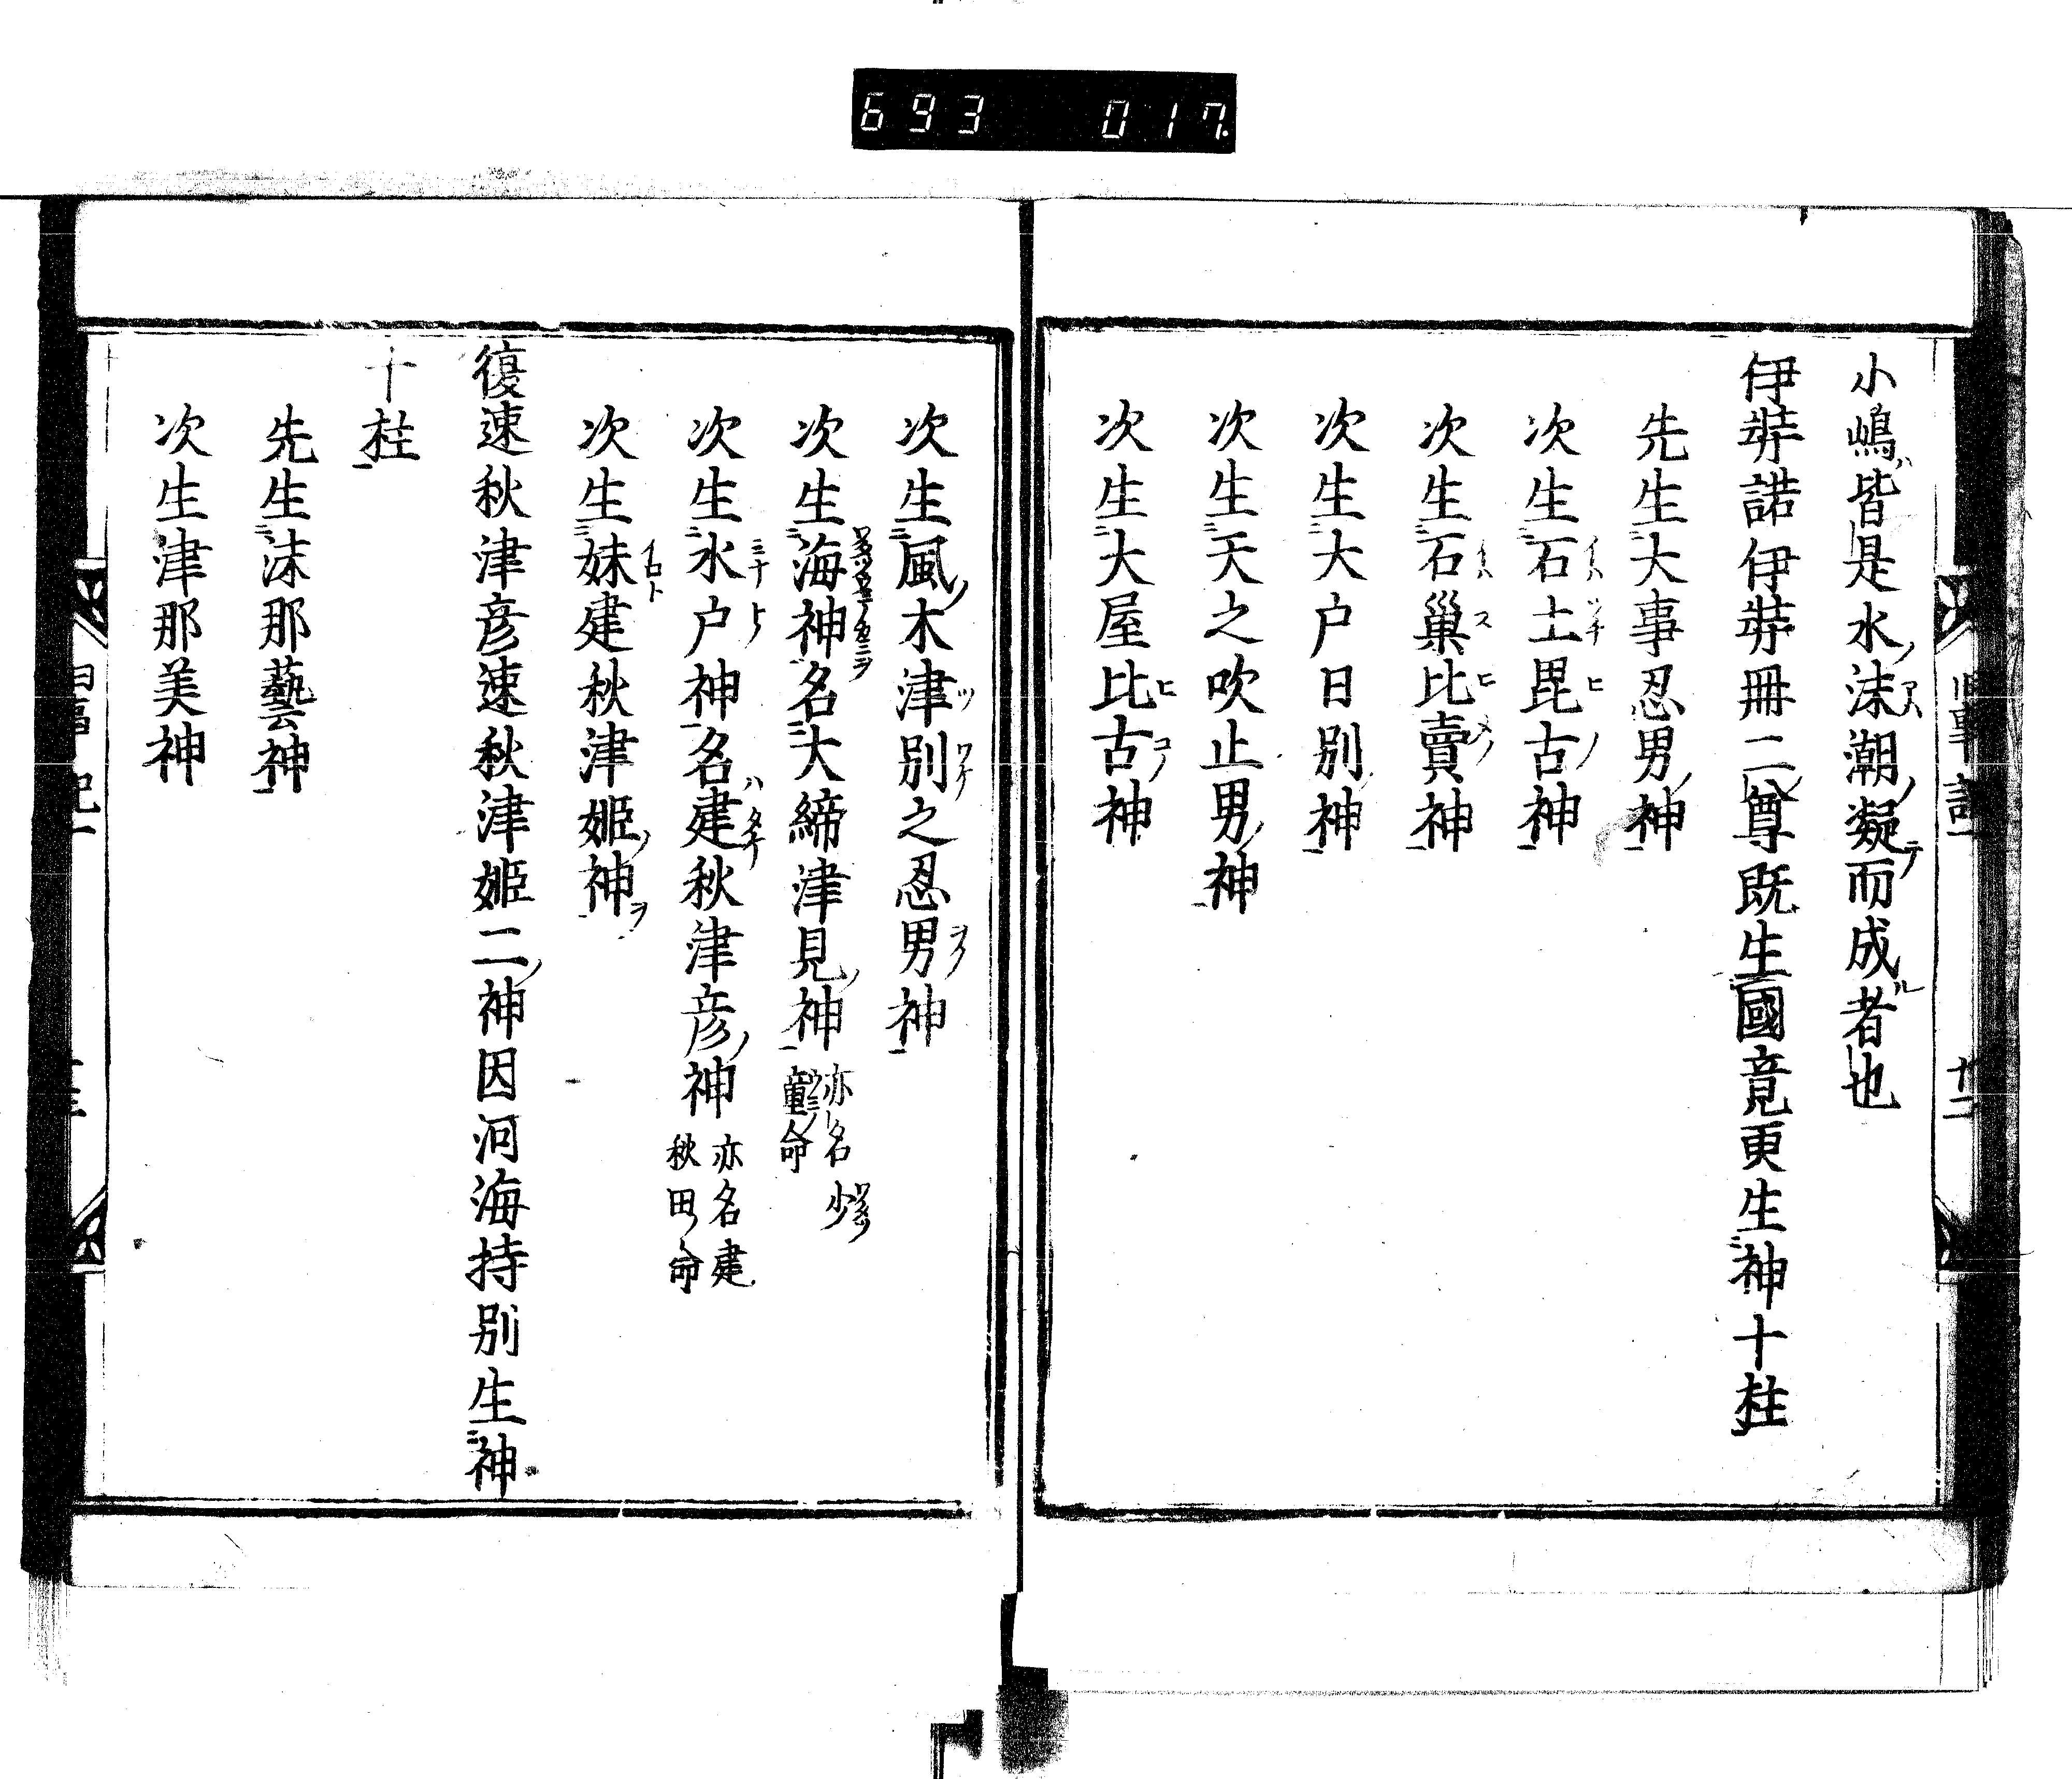 693 017
小嶋皆是水沫潮凝而成者也
伊弉諾伊弉冊二尊既生國竟更生神十柱
先生大事忍男神
次生石土毘古神
次生石巢比賣神
次生大户日别神
次生天之吹止男神
次生大屋比古神
次生風木津别之忍男神
次生海神名大締津見神 亦名少童命
次生水户神名建秋津彦神 亦名建秋田命
次生妹建秋津姬神
復速秋津彦速秋津姬二神因河海持别生神
十柱
先生沫那藝神
次生津那美神